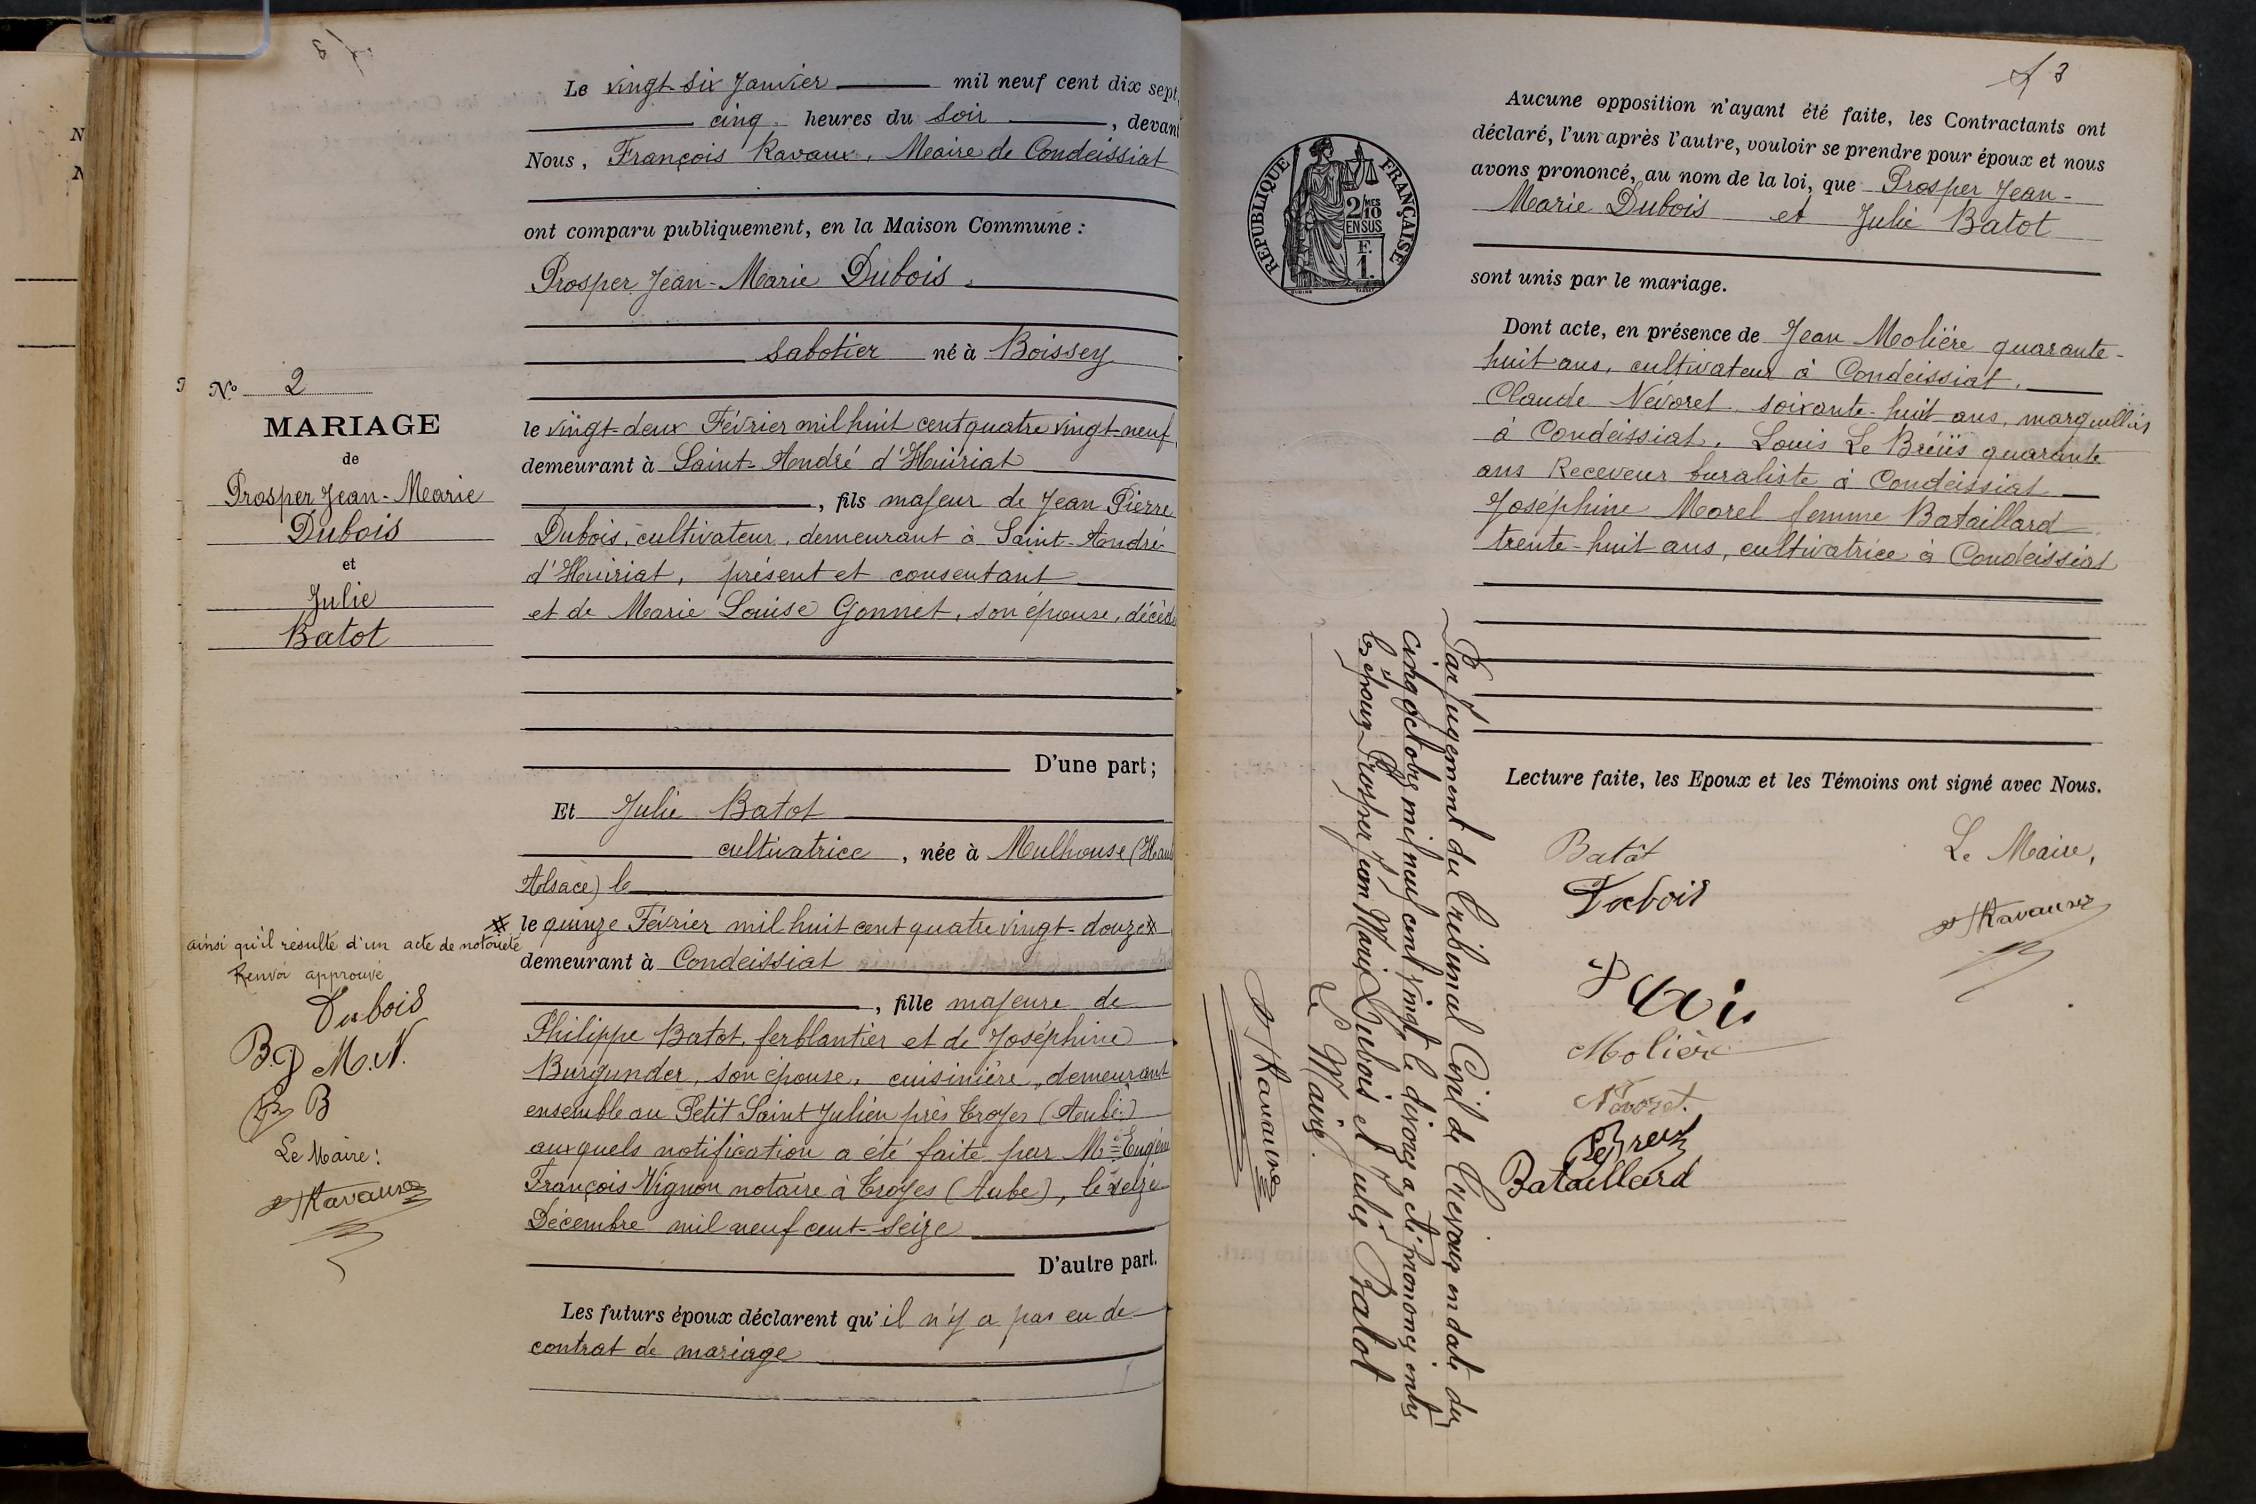 Le vingt-six Janvier mil neuf cent dix sept,
cinq heures du soir, devant
Nous, François Ravaux, Maire de Condeissiat
ont comparu publiquement, en la Maison Commune :
Prosper Jean-Marie Dubois.
sabotier né à Boissey
le vingt-deux Février mil huit cent quatre vingt-neuf,
demeurant à Saint-André d'Huiriat
, fils majeur de Jean Pierre
Dubois, cultivateur, demeurant à Saint-André-
d'Huiriat, présent et consentant
et de Marie Louise Gonnet, son épouse, décédé
D'une part;
Et Julie Batot
cultivatrice, née à Mulhouse (Haute
Alsace) le
le quinze Février mil huit cent quatre vingt-douze
demeurant à Condeissiat
, fille majeure de
Philippe Batot, ferblantier et de Joséphine
Burgunder, son épouse, cuisinière, demeurant
ensemble au Petit Saint Julien près Troyes (Aube)
auxquels notification a été faite par Me Eugène
François Vignon notaire à Troyes (Aube), le seize
Décembre mil neuf cent-seize
D'autre part.
Les futurs époux déclarent qu'il n'y a pas eu de
contrat de mariage
No 2
MARIAGE
de
Prosper Jean-Marie
Dubois
et
Julie
Batot
ainsi qu'il résulte d'un acte de notoriété
Renvoi approuvé
Dubois
B.J M.N.
B
Le Maire :
Ravaux
3
Aucune opposition n'ayant été faite, les Contractants ont
déclaré, l'un après l'autre, vouloir se prendre pour époux et nous
avons prononcé, au nom de la loi, que Prosper Jean-
Marie Dubois et Julie Batot
sont unis par le mariage.
REPUBLIQUE FRANÇAISE
2/10 MES
EN SUS
F.
1.
Dont acte, en présence de Jean Molière quarante-
huit ans, cultivateur à Condeissiat,
Claude Névoret soixante-huit ans, marguillier
à Condeissiat, Louis Le Breüs quarante
ans Receveur buraliste à Condeissiat
Joséphine Morel femme Bataillard
trente-huit ans, cultivatrice à Condeissiat
Lecture faite, les Epoux et les Témoins ont signé avec Nous.
Batôt
Dubois
Molière
Névoret
Bataillard
Le Maire,
Ravaux
Par jugement du Tribunal Civil de Trévoux en date du
cinq octobre mil neuf cent vingt, le divorce a été prononcé entre
les époux Prosper Jean Marie Dubois et Julie Batot
Le Maire.
Ravaux